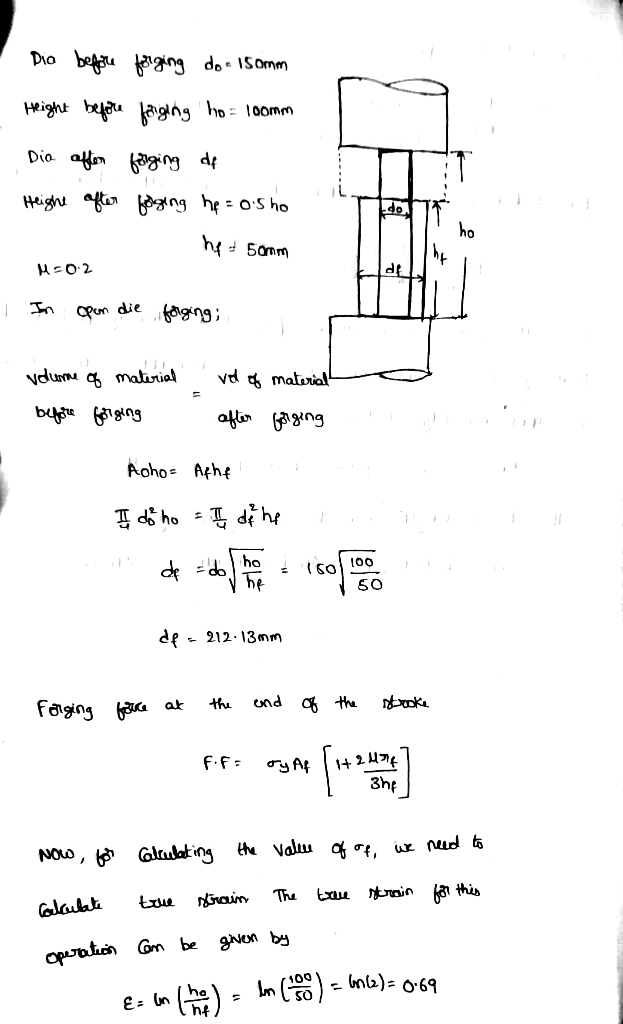 Dia before forging do = 150mm
Height before forging ho = 100mm
Dia after forging df
Height after forging hf = 0.5 ho
hf = 50mm
μ = 0.2
do
ho
hf
df
In open die forging;
volume of material before forging = vol of material after forging
Aoho = Afhf
π/4 do² ho = π/4 df² hf
df = do √(ho/hf) = 150 √(100/50)
df = 212.13mm
Forging force at the end of the stroke
F.F = σy Af [1 + 2μrf/3hf]
Now, for calculating the value of σf, we need to
calculate true strain The true strain for this
operation can be given by
ε = ln (ho/hf) = ln (100/50) = ln(2) = 0.69